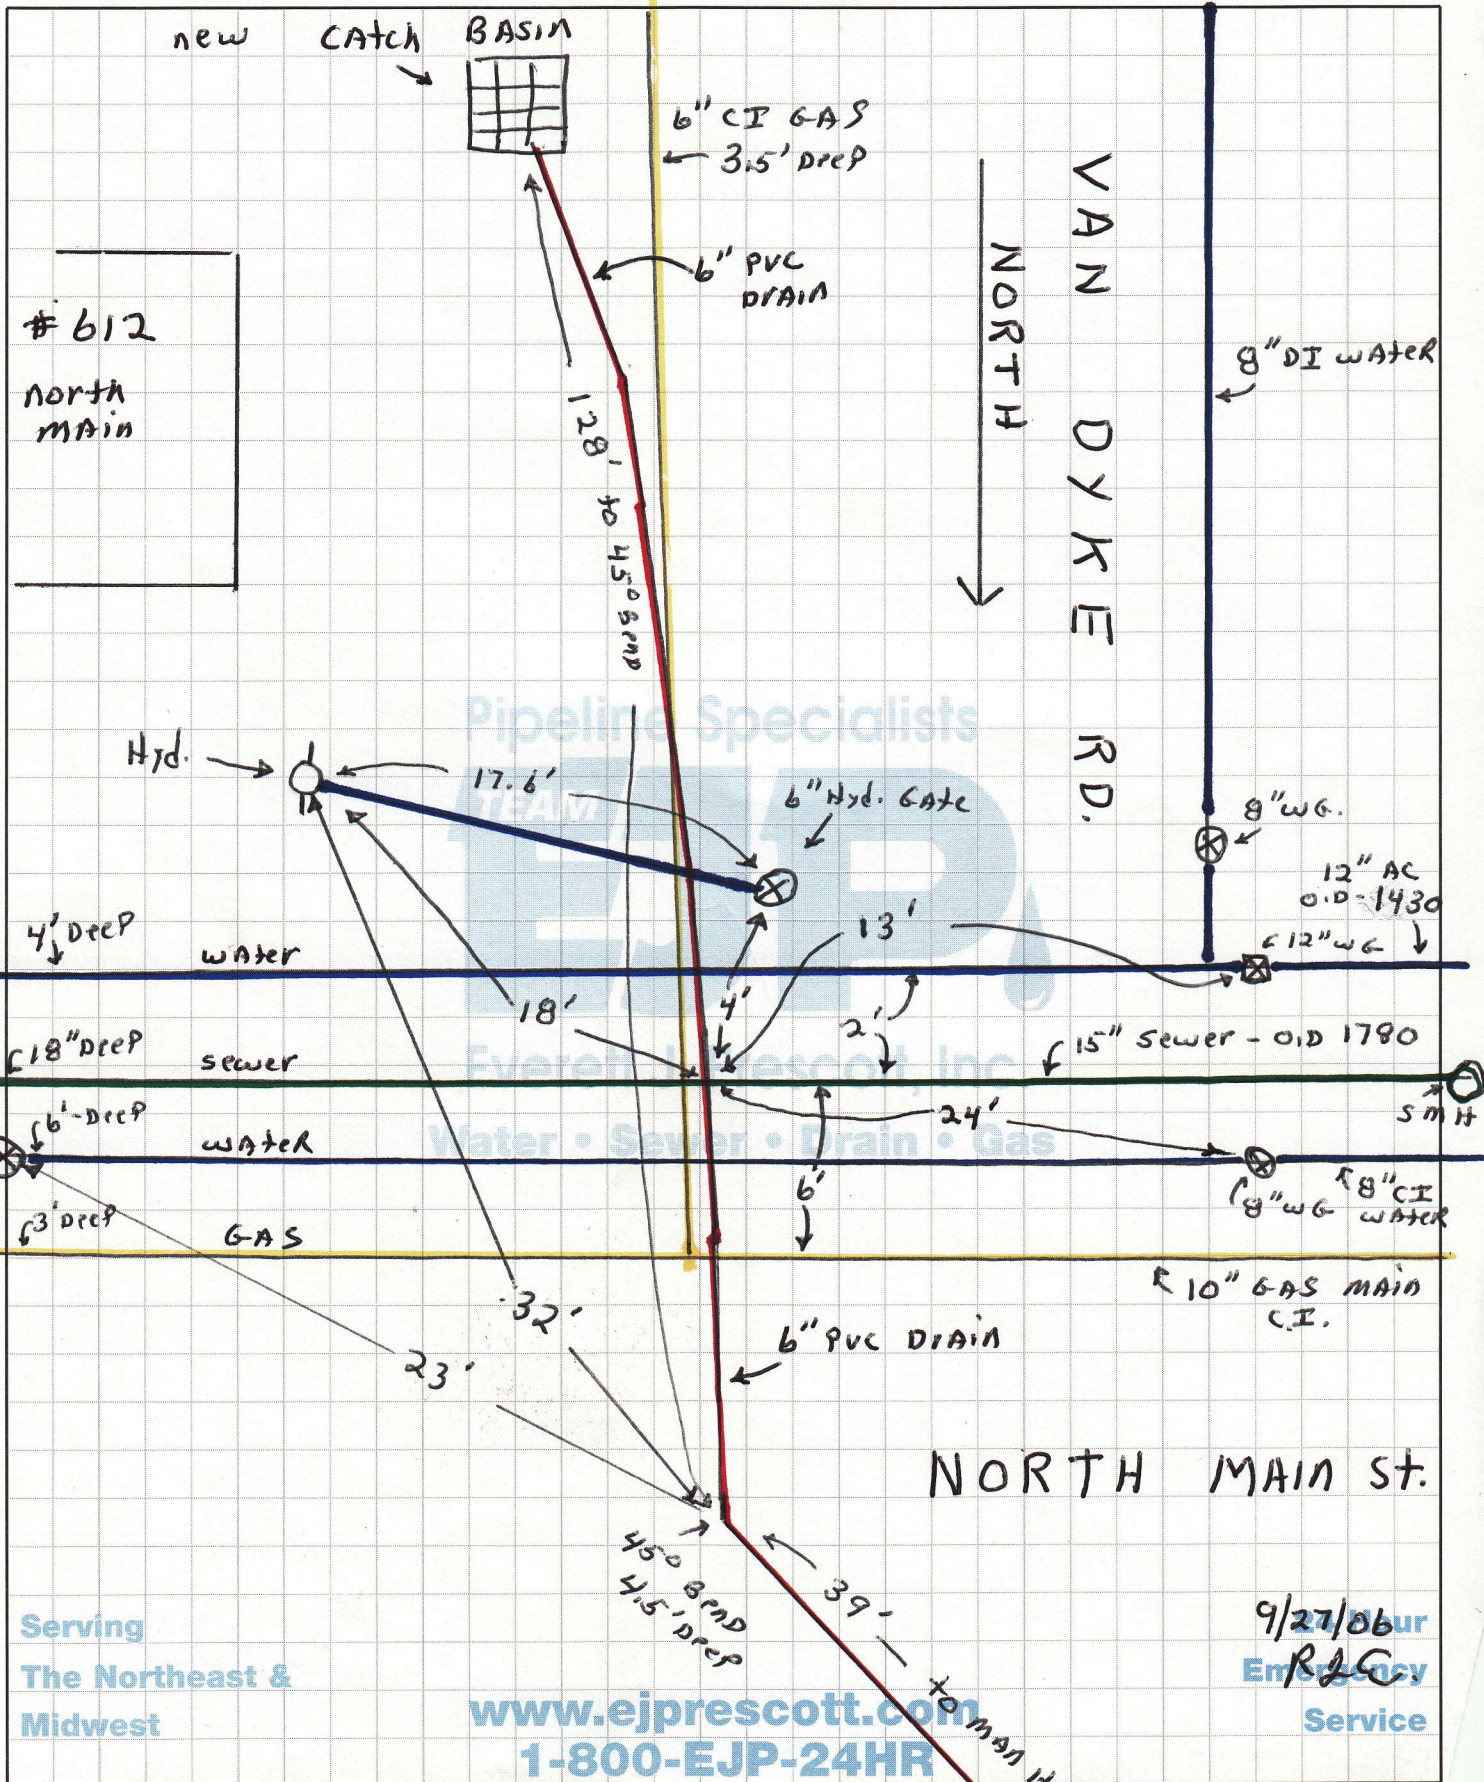 new CAtch BASIN
6" CI GAS
3.5' DeeP
VAN DYKE RD.
NORTH
6" PVC
DrAin
# 612
north
mAin
8" DI wAteR
128' to 45° Bend
Pipeline Specialists
Hyd.
17.6'
TEAM
EJP
6" Hyd. GAte
8" WG.
12" AC
O.D - 1430
13'
12" WG
4' DeeP
wAter
18'
4'
2'
18" DeeP
sewer
15" Sewer - O.D 1780
Everett J. Prescott, Inc
SMH
24'
6'-DeeP
wAteR
Water • Sewer • Drain • Gas
6'
8" WG
8" CI
wAteR
3' DeeP
GAS
10" GAS mAin
C.I.
32'
6" PVC DrAiN
23'
NORTH MAIN St.
45° Bend
4.5' DeeP
39' to mAn H
9/27/06
Serving
The Northeast &
Midwest
24 Hour
Emergency
Service
www.ejprescott.com
1-800-EJP-24HR